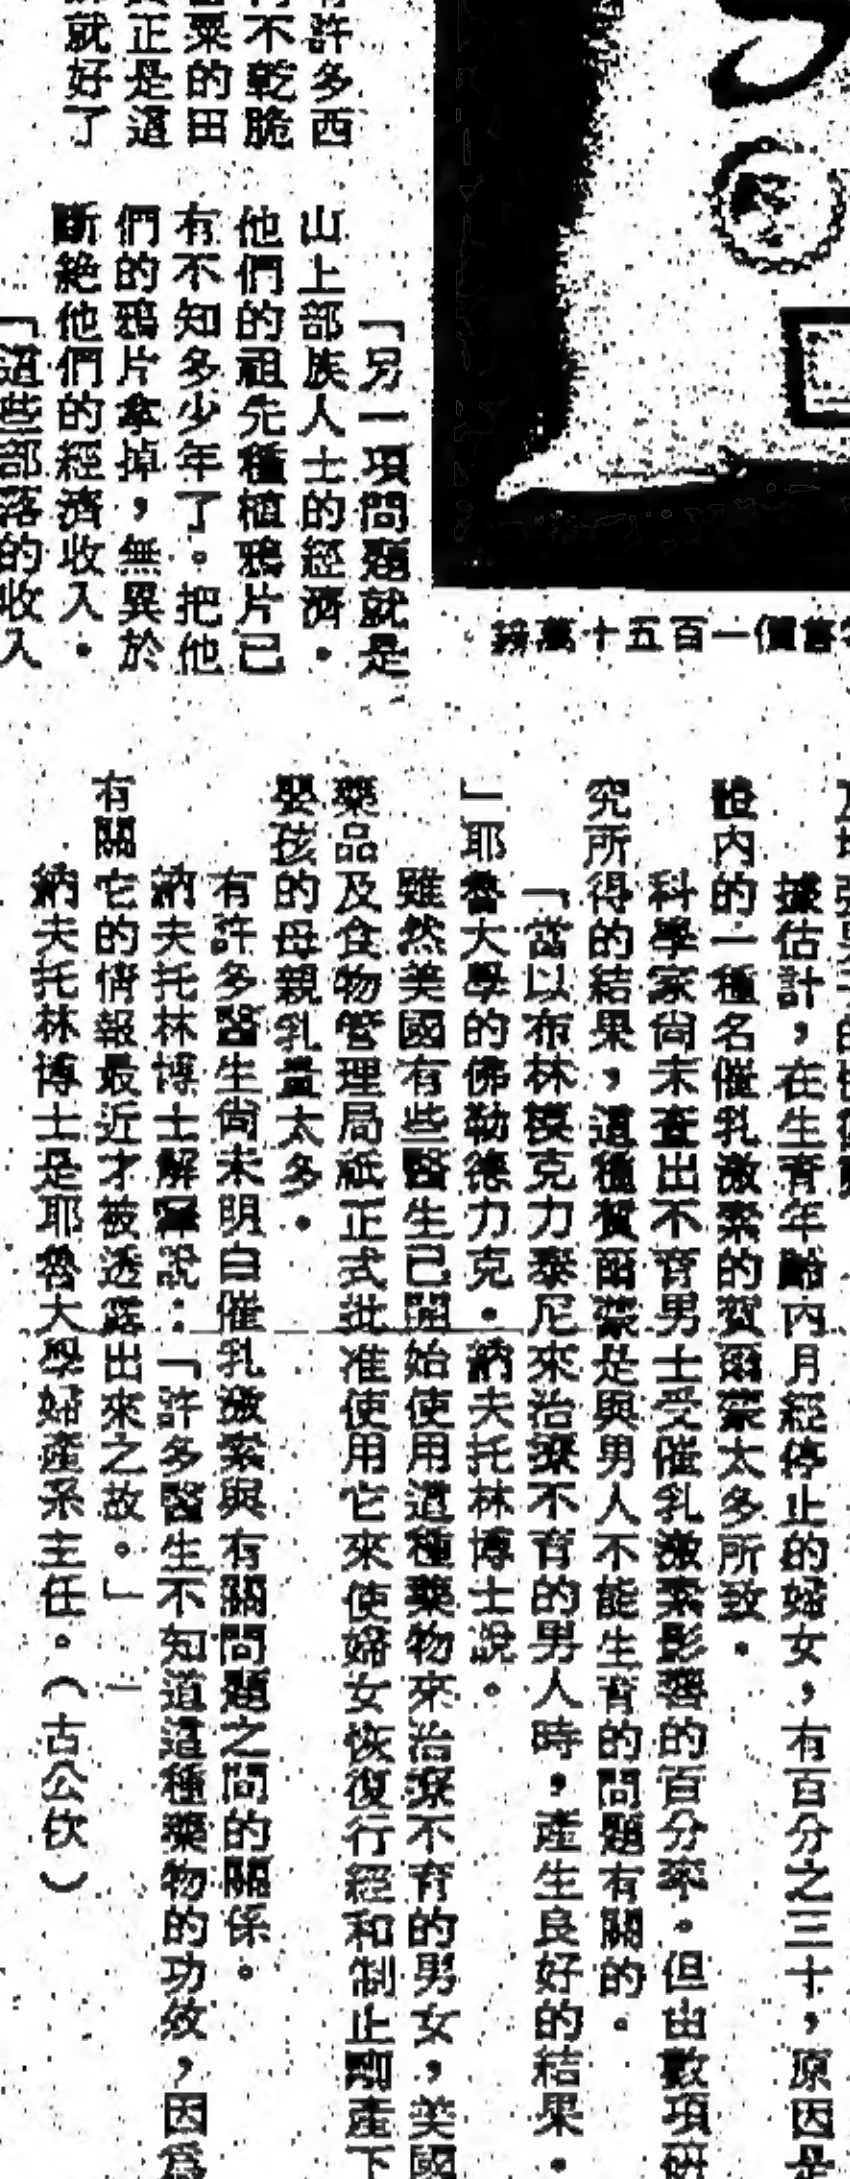 許多西
不乾脆
粟的田
正是這
就好了
「另一項問題就是
山上部族人士的經濟。
他們的祖先種植鴉片已
有不知多少年了。把他
們的鴉片拿掉，無異於
斷絶他們的經濟收入。
「這些部落的收入
售價一百五十萬鎊
據估計，在生育年齡內月經停止的婦女，有百分之三十，原因是
體內的一種名催乳激素的賀爾蒙太多所致。
科學家尙未查出不育男士受催乳激素影響的百分率。但由數項研
究所得的結果，這種賀爾蒙是與男人不能生育的問題有關的。
「當以布林模克力泰尼來治療不育的男人時，產生良好的結果。
」耶魯大學的佛勒德力克。納夫托林博士說。
雖然美國有些醫生已開始使用這種藥物來治療不育的男女，美國
藥品及食物管理局祇正式批准使用它來使婦女恢復行經和制止剛產下
嬰孩的母親乳量太多。
有許多醫生尙未明白催乳激素與有關問題之間的關係。
納夫托林博士解釋說：「許多醫生不知道這種藥物的功效，因爲
有關它的情報最近才被透露出來之故。」
納夫托林博士是耶魯大學婦產系主任。（古公欽）